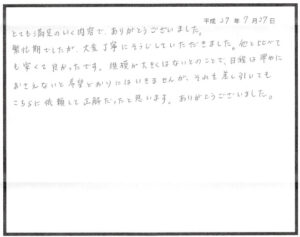 平成27年7月27日
とても満足のいく内容で、ありがとうございました。
繁忙期でしたが、大変丁寧にそうじしていただきました。他と比べて
も安くて良かったです。規模が大きくはないとのことで、日程は早めに
おさえないと希望どおりにはいきませんが、それを差し引いても
こちらに依頼して正解だったと思います。ありがとうございました。